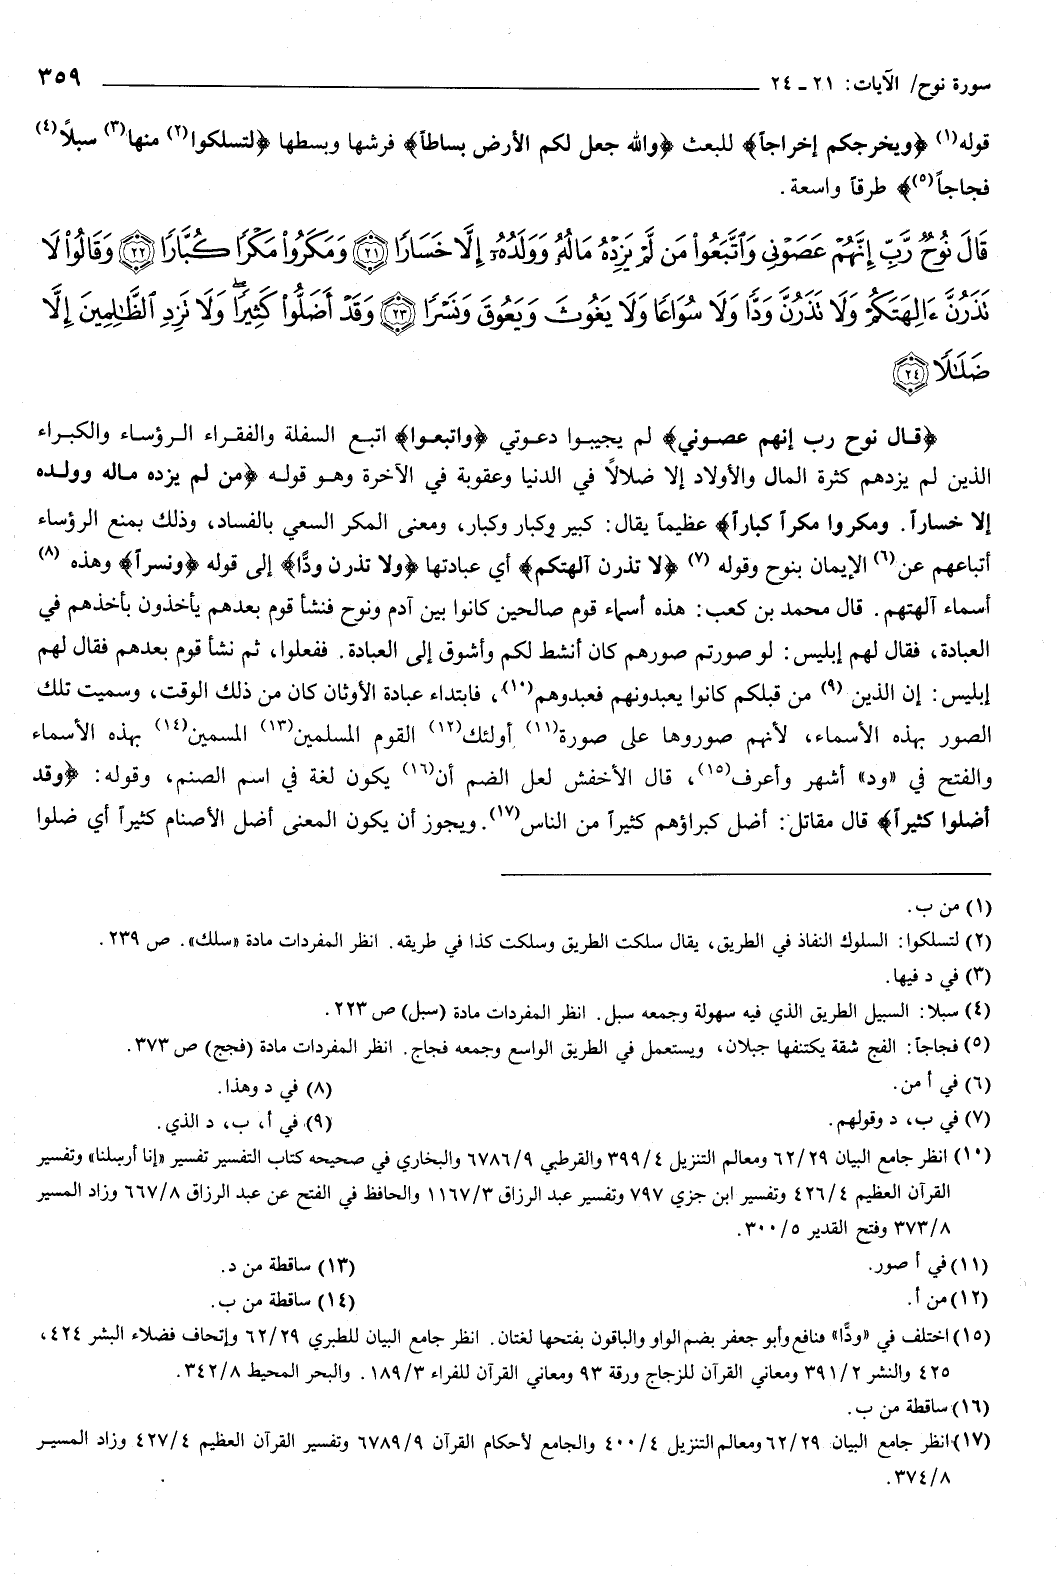 سورة نوح/ الآيات: ٢١ ـ ٢٤ ٣٥٩
قوله(١) ﴿ويخرجكم إخراجاً﴾ للبعث ﴿والله جعل لكم الأرض بساطاً﴾ فرشها وبسطها ﴿لتسلكوا(٢) منها(٣) سبلاً(٤)
فجاجاً(٥)﴾ طرقاً واسعة.
قَالَ نُوحٌ رَّبِّ إِنَّهُمْ عَصَوْنِي وَاتَّبَعُوا مَن لَّمْ يَزِدْهُ مَالُهُ وَوَلَدُهُۥٓ إِلَّا خَسَارًا ﴿٢١﴾ وَمَكَرُوا مَكْرًا كُبَّارًا ﴿٢٢﴾ وَقَالُوا لَا
تَذَرُنَّ ءَالِهَتَكُمْ وَلَا تَذَرُنَّ وَدًّا وَلَا سُوَاعًا وَلَا يَغُوثَ وَيَعُوقَ وَنَسْرًا ﴿٢٣﴾ وَقَدْ أَضَلُّوا كَثِيرًا ۖ وَلَا تَزِدِ الظَّالِمِينَ إِلَّا
ضَلَالًا ﴿٢٤﴾
﴿قال نوح رب إنهم عصوني﴾ لم يجيبوا دعوتي ﴿واتبعوا﴾ اتبع السفلة والفقراء الرؤساء والكبراء
الذين لم يزدهم كثرة المال والأولاد إلا ضلالاً في الدنيا وعقوبة في الآخرة وهو قوله ﴿من لم يزده ماله وولده
إلا خساراً. ومكروا مكراً كباراً﴾ عظيماً يقال: كبير وكبار وكبار، ومعنى المكر السعي بالفساد، وذلك بمنع الرؤساء
أتباعهم عن(٦) الإيمان بنوح وقوله (٧) ﴿لا تذرن آلهتكم﴾ أي عبادتها ﴿ولا تذرن ودًّا﴾ إلى قوله ﴿ونسراً﴾ وهذه (٨)
أسماء آلهتهم. قال محمد بن كعب: هذه أسماء قوم صالحين كانوا بين آدم ونوح فنشأ قوم بعدهم يأخذون بأخذهم في
العبادة، فقال لهم إبليس: لو صورتم صورهم كان أنشط لكم وأشوق إلى العبادة. ففعلوا، ثم نشأ قوم بعدهم فقال لهم
إبليس: إن الذين (٩) من قبلكم كانوا يعبدونهم فعبدوهم(١٠)، فابتداء عبادة الأوثان كان من ذلك الوقت، وسميت تلك
الصور بهذه الأسماء، لأنهم صوروها على صورة(١١) أولئك(١٢) القوم المسلمين(١٣) المسمين(١٤) بهذه الأسماء
والفتح في «ود» أشهر وأعرف(١٥)، قال الأخفش لعل الضم أن(١٦) يكون لغة في اسم الصنم، وقوله: ﴿وقد
أضلوا كثيراً﴾ قال مقاتل: أضل كبراؤهم كثيراً من الناس(١٧). ويجوز أن يكون المعنى أضل الأصنام كثيراً أي ضلوا
(١) من ب.
(٢) لتسلكوا: السلوك النفاذ في الطريق، يقال سلكت الطريق وسلكت كذا في طريقه. انظر المفردات مادة «سلك». ص ٢٣٩.
(٣) في د فيها.
(٤) سبلا: السبيل الطريق الذي فيه سهولة وجمعه سبل. انظر المفردات مادة (سبل) ص ٢٢٣.
(٥) فجاجاً: الفج شقة يكتنفها جبلان، ويستعمل في الطريق الواسع وجمعه فجاج. انظر المفردات مادة (فجج) ص ٣٧٣.
(٦) في أ من. (٨) في د وهذا.
(٧) في ب، د وقولهم. (٩) في أ، ب، د الذي.
(١٠) انظر جامع البيان ٦٢/٢٩ ومعالم التنزيل ٣٩٩/٤ والقرطبي ٦٧٨٦/٩ والبخاري في صحيحه كتاب التفسير تفسير «إنا أرسلنا» وتفسير
القرآن العظيم ٤٢٦/٤ وتفسير ابن جزي ٧٩٧ وتفسير عبد الرزاق ١١٦٧/٣ والحافظ في الفتح عن عبد الرزاق ٦٦٧/٨ وزاد المسير
٣٧٣/٨ وفتح القدير ٣٠٠/٥.
(١١) في أ صور. (١٣) ساقطة من د.
(١٢) من أ. (١٤) ساقطة من ب.
(١٥) اختلف في «ودًّا» فنافع وأبو جعفر بضم الواو والباقون بفتحها لغتان. انظر جامع البيان للطبري ٦٢/٢٩ وإتحاف فضلاء البشر ٤٢٤،
٤٢٥ والنشر ٣٩١/٢ ومعاني القرآن للزجاج ورقة ٩٣ ومعاني القرآن للفراء ١٨٩/٣. والبحر المحيط ٣٤٢/٨.
(١٦) ساقطة من ب.
(١٧) انظر جامع البيان ٦٢/٢٩ ومعالم التنزيل ٤٠٠/٤ والجامع لأحكام القرآن ٦٧٨٩/٩ وتفسير القرآن العظيم ٤٢٧/٤ وزاد المسير
٣٧٤/٨.